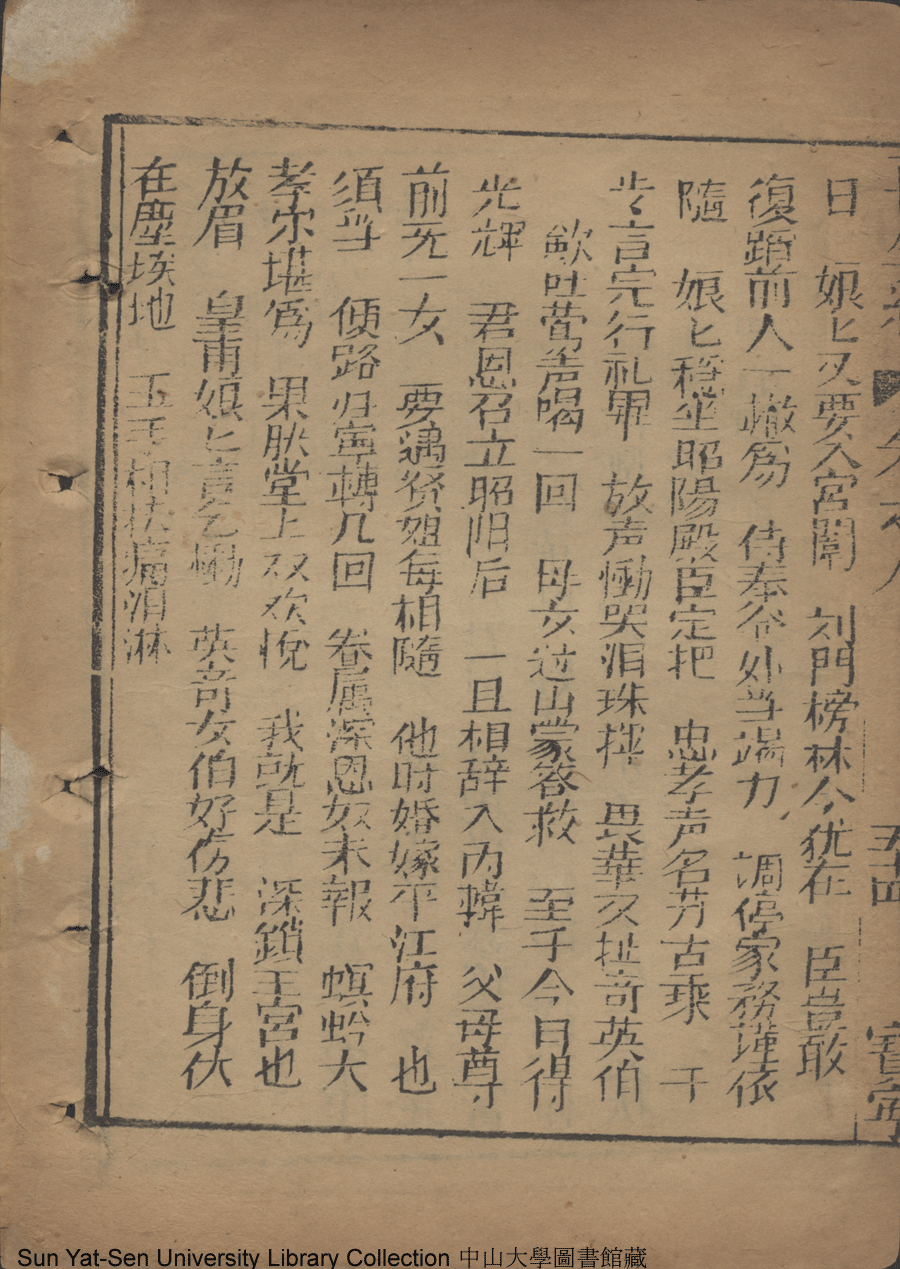 五十四
日　娘匕又要入宮闈　刘門榜林今犹在　臣豈敢
復蹈前人一轍為　侍奉爷外当竭力　調停家務謹依
隨　娘匕穩坐昭陽殿臣定把　忠孝声名芳古乘　千
步言完行礼畢　放声慟哭泪珠揮　畏華又扯奇英伯
欲吐莺声喝一回　母女过山蒙答救　至于今日得
光輝　君恩召立昭阳后　一旦相辞入内幃　父母尊
前无一女　要過贤姐每相隨　他时婚嫁平江府　也
須当　便路归寧轉几回　眷属深恩奴未報　螟蛉大
孝尔堪為　果肰堂上双欢悅　我就是　深鎖王宮也
放眉　皇甫娘匕言乞慟　英奇女伯好伤悲　倒身伏
在塵埃地　玉手相扶痛泪淋
Sun Yat-Sen University Library Collection 中山大學圖書館藏